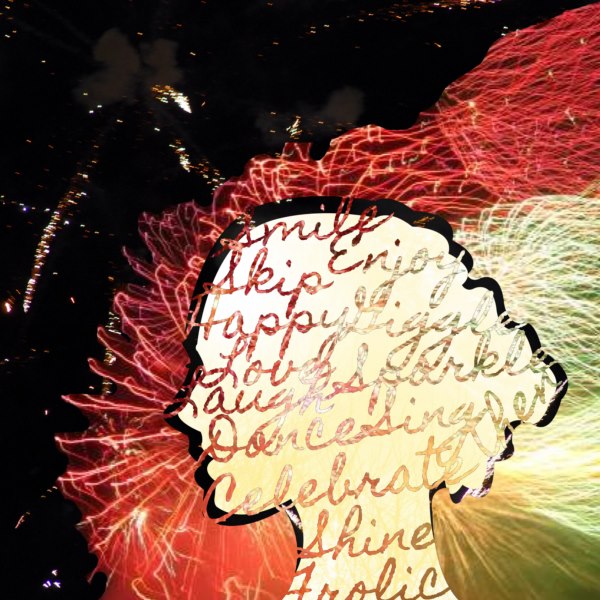 Smile
Enjoy
Skip
Happy Giggle
Love Sparkle
Laugh
Dance Sing
Celebrate
Shine
Frolic